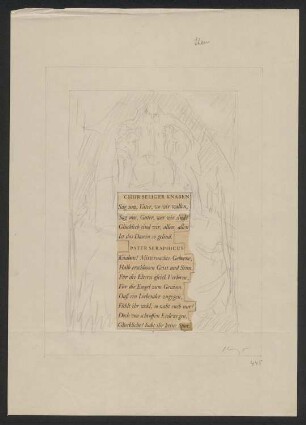 CHOR SELIGER KNABEN
Sag uns, Vater, wo wir wallen,
Sag uns, Guter, wer wir sind?
Glücklich sind wir, allen, allen
Ist das Dasein so gelind.
PATER SERAPHICUS
Knaben! Mitternachts-Geborne,
Halb erschlossen Geist und Sinn,
Für die Eltern gleich Verlorne,
Für die Engel zum Gewinn.
Daß ein Liebender zugegen,
Fühlt ihr wohl, so naht euch nur!
Doch von schroffen Erdewegen,
Glückliche! habt ihr keine Spur.